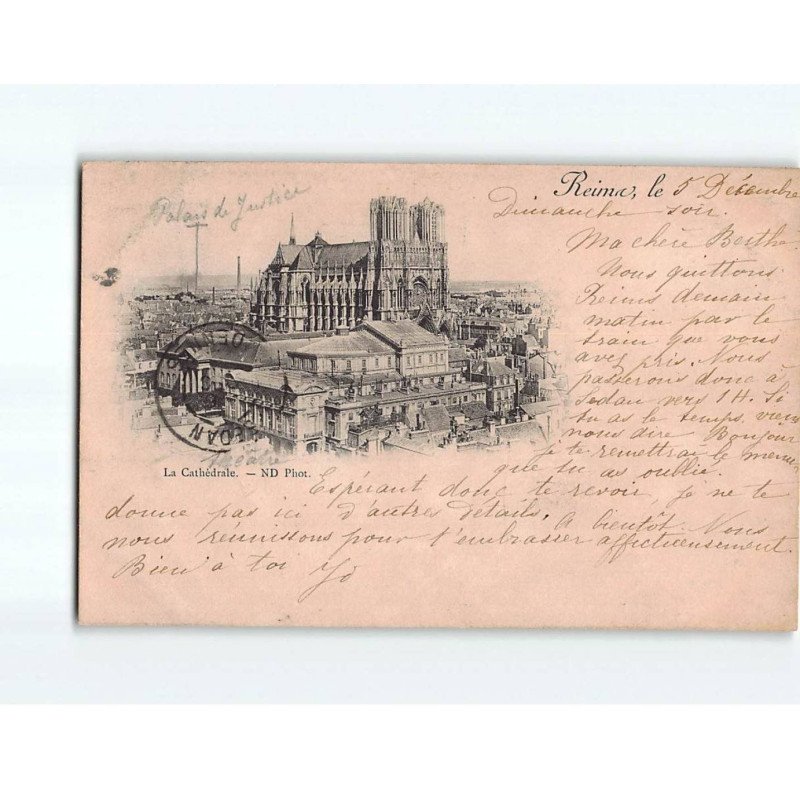 Palais de Justice
Reims, le 5 Décembre
Dimanche soir.
Ma chère Berthe
Nous quittons
Reims demain
matin par le
train que vous
avez pris. Nous
passerons donc à
Sedan vers 1H. Si
tu as le temps, viens
nous dire Bonjour
je te remettrai le menu
que tu as oublié.
SEDAN
Théâtre
La Cathédrale. — ND Phot.
Espérant donc te revoir, je ne te
donne pas ici d'autres détails. A bientôt. Nous
nous réunissons pour t'embrasser affectueusement.
Bien à toi